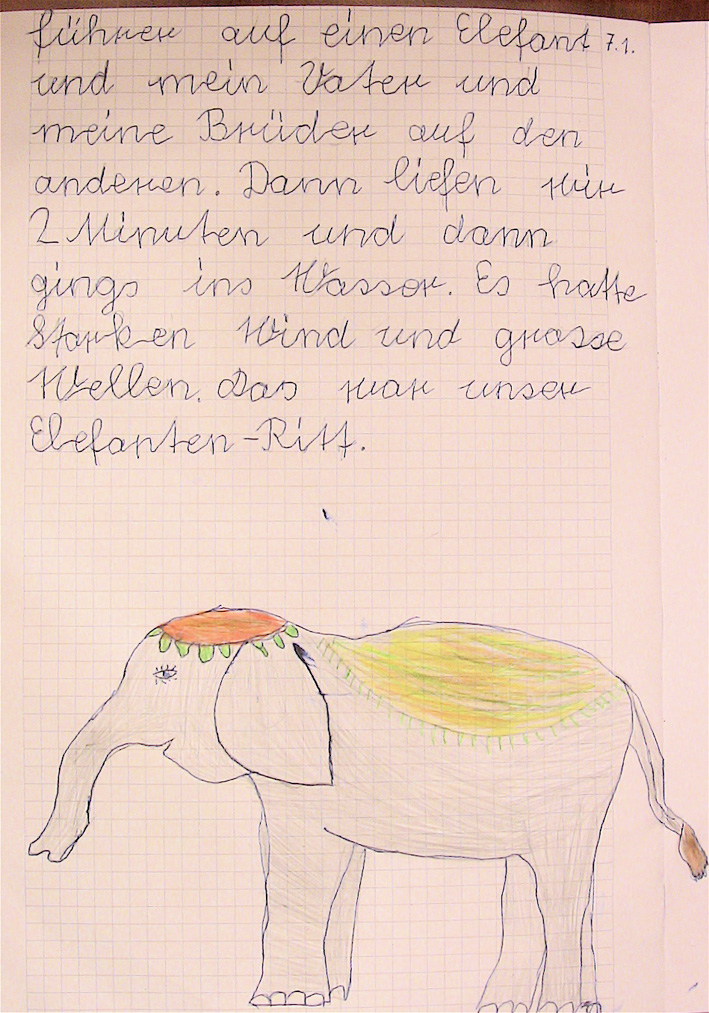 führer auf einen Elefant 7.1.
und mein Vater und
meine Brüder auf den
anderen. Dann liefen wir
2 Minuten und dann
gings ins Wasser. Es hatte
Starken Wind und grosse
Wellen. Das war unser
Elefanten-Ritt.